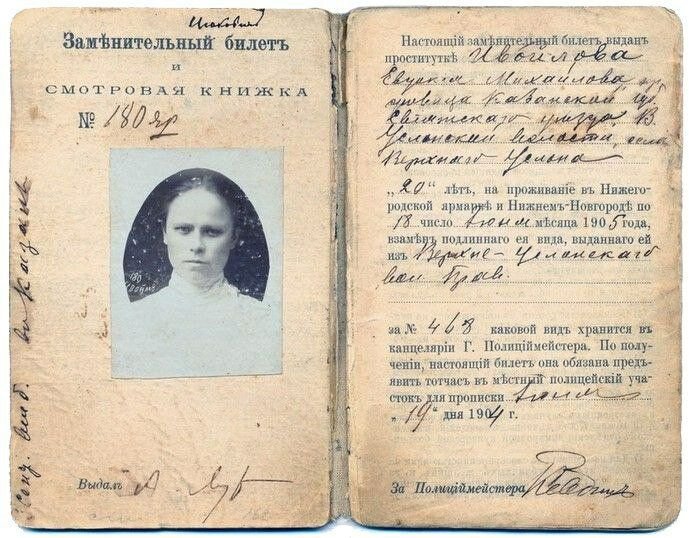 Замѣнительный билетъ
и
СМОТРОВАЯ КНИЖКА
№ 180 яр
180
Выдалъ
въ Казань
Настоящій замѣнительный билетъ выданъ
проституткѣ Ивойлова
Евдокія Михайлова, кр
Казанской губ
Свіяжскаго уѣзда, В.
Услонской волости, села
Верхняго Услона
„20“ лѣтъ, на проживаніе въ Нижего-
родской ярмаркѣ и Нижнемъ-Новгородѣ по
18 число Іюня мѣсяца 1905 года,
взамѣнъ подлиннаго ея вида, выданнаго ей
изъ Верхне-Услонскаго
вол Прав.
за № 468 каковой видъ хранится въ
канцеляріи Г. Полиціймейстера. По полу-
ченіи, настоящій билетъ она обязана предъ-
явить тотчасъ въ мѣстный полицейскій уча-
стокъ для прописки Іюня
„19“ дня 1904 г.
За Полиціймейстера